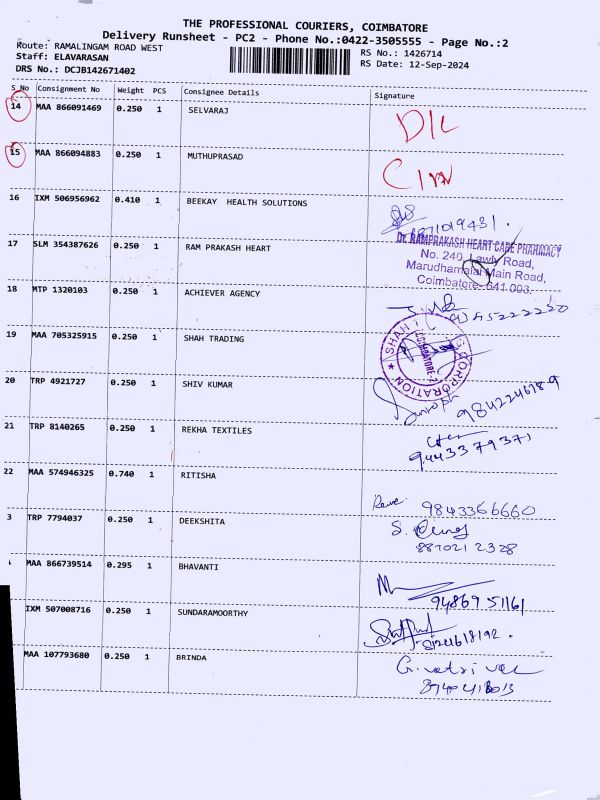 THE PROFESSIONAL COURIERS, COIMBATORE
Delivery Runsheet - PC2 - Phone No.:0422-3505555 - Page No.:2
Route: RAMALINGAM ROAD WEST RS No.: 1426714
Staff: ELAVARASAN RS Date: 12-Sep-2024
DRS No.: DCJB142671402
S_No Consignment No Weight PCS Consignee Details Signature
14 MAA 866091469 0.250 1 SELVARAJ D/L
15 MAA 866094883 0.250 1 MUTHUPRASAD
16 IXM 506956962 0.410 1 BEEKAY HEALTH SOLUTIONS
17 SLM 354387626 0.250 1 RAM PRAKASH HEART
Dr. RAMPRAKASH HEART CARE PHARMACY
No. 240, Lawly Road,
Marudhamalai Main Road,
Coimbatore- 641 003.
18 MTP 1320103 0.250 1 ACHIEVER AGENCY
19 MAA 705325915 0.250 1 SHAH TRADING
SHAH CORPORATION COIMBATORE
20 TRP 4921727 0.250 1 SHIV KUMAR
21 TRP 8140265 0.250 1 REKHA TEXTILES
9443379371
22 MAA 574946325 0.740 1 RITISHA
9843366660
3 TRP 7794037 0.250 1 DEEKSHITA
S.
8870212328
MAA 866739514 0.295 1 BHAVANTI
94869 51161
IXM 507008716 0.250 1 SUNDARAMOORTHY
MAA 107793680 0.250 1 BRINDA
G. vetri vel